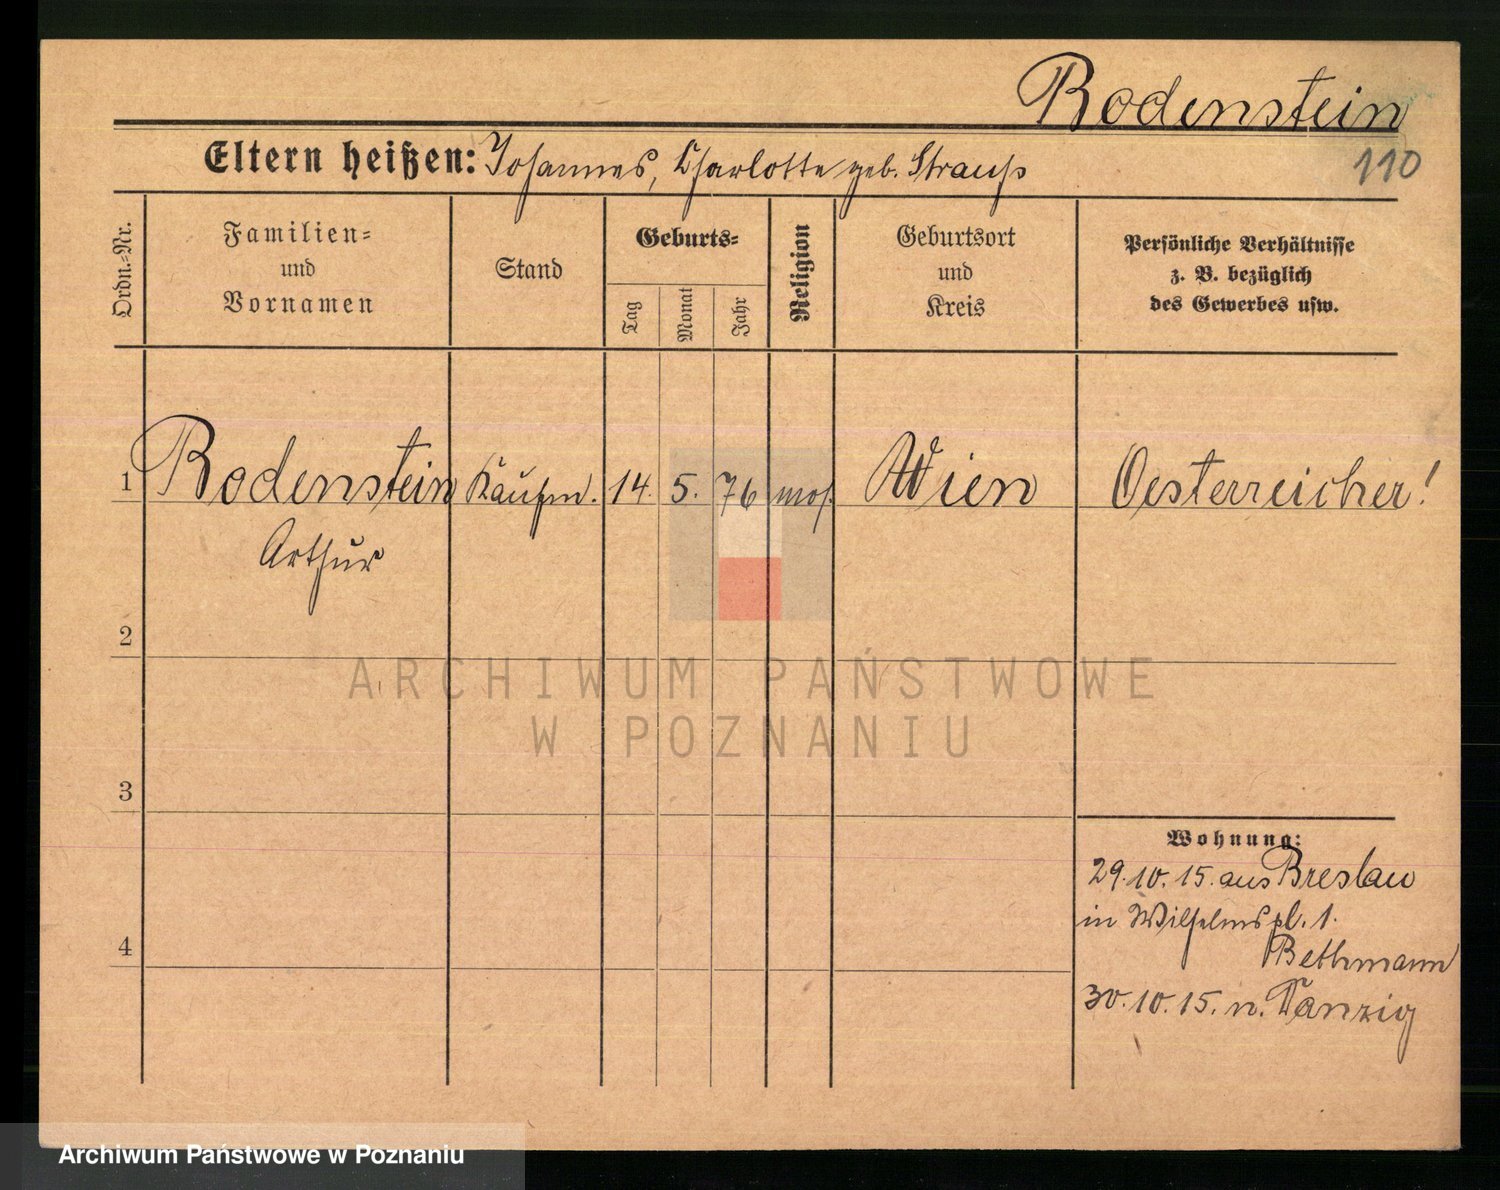 Bodenstein
110
Eltern heißen: Johannes, Charlotte geb. Strauß
Ordn.-Nr.
Familien-
und
Vornamen
Stand
Geburts-
Tag
Monat
Jahr
Religion
Geburtsort
und
Kreis
Persönliche Verhältnisse
z. B. bezüglich
des Gewerbes usw.
1 Bodenstein Kaufm. 14. 5. 76 mos. Wien Oesterreicher!
Arthur
2
ARCHIWUM PAŃSTWOWE
W POZNANIU
3
Wohnung:
29.10.15. aus Breslau
in Wilhelmspl. 1.
4
Bethmann
30.10.15. n. Danzig
Archiwum Państwowe w Poznaniu